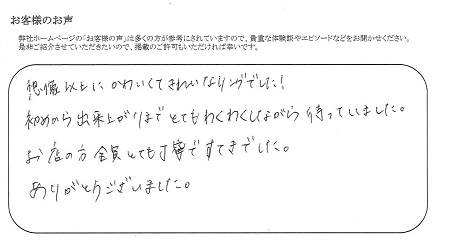 お客様のお声
弊社ホームページの「お客様の声」は多くの方が参考にされていますので、貴重な体験談やエピソードなどをお聞かせください。
是非ご紹介させていただきたいので、掲載のご許可もいただければ幸いです。
想像以上にかわいくてきれいなリングでした!
初めから出来上がりまでとてもわくわくしながら待っていました。
お店の方全員とても丁寧ですてきでした。
ありがとうございました。